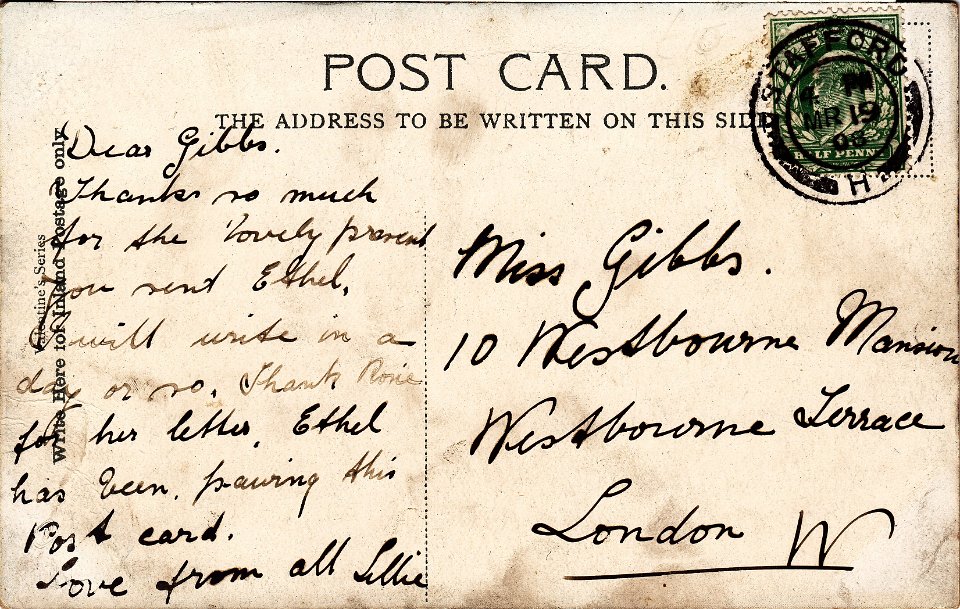 POST CARD.
THE ADDRESS TO BE WRITTEN ON THIS SIDE
STAFFORD
MR 19
08
H
HALF PENNY
Valentine's Series
Write Here for Inland Postage only
Dear Gibbs.
Thanks so much
for the lovely present
You send Ethel,
I will write in a
day or so. Thank Rosie
for her letter, Ethel
has been. pawing this
Post card.
Love from all Lillie
Miss Gibbs.
10 Westbourne Mansion
Westbourne Terrace
London W